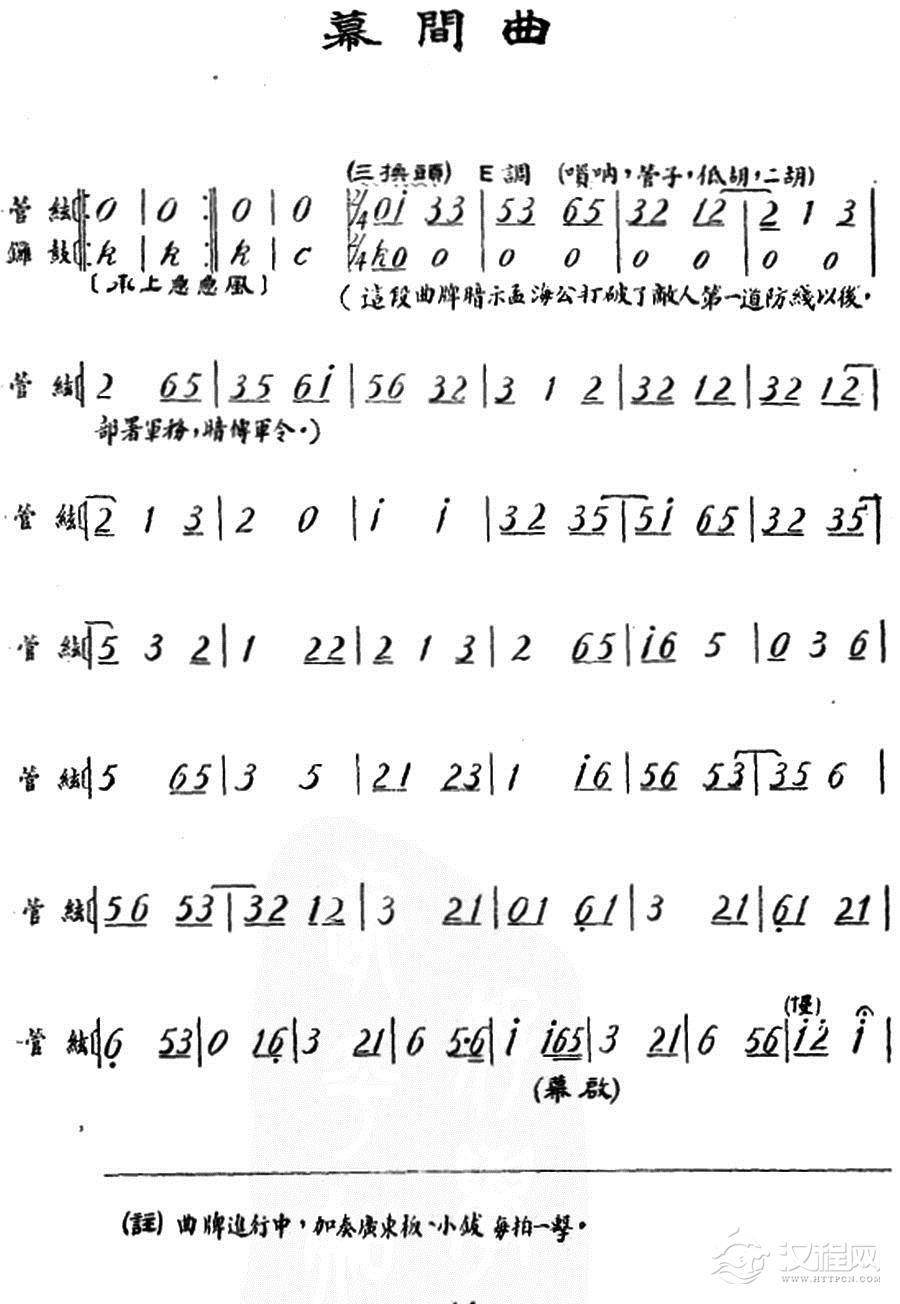 幕間曲
(三換頭) E調 (嗩吶,管子,低胡,二胡)
管絃 0 | 0 :| 0 | 0 2/4 0i 33 | 53 65 | 32 12 | 2 1 3 |
鑼鼓 K | K :| K | C 2/4 K0 0 | 0 0 | 0 0 | 0 0
〔承上急急風〕 (這段曲牌暗示孟海公打破了敵人第一道防綫以後,
管絃 2 65 | 35 6i | 56 32 | 3 1 2 | 32 12 | 32 12 |
部署軍務,暗傳軍令。)
管絃 2 1 3 | 2 0 | i i | 32 35 | 5i 65 | 32 35 |
管絃 5 3 2 | 1 22 | 2 1 3 | 2 65 | i6 5 | 0 3 6 |
管絃 5 65 | 3 5 | 21 23 | 1 i6 | 56 53 | 35 6 |
管絃 56 53 | 32 12 | 3 21 | 01 61 | 3 21 | 61 21 |
(慢)
管絃 6 53 | 0 16 | 3 21 | 6 5·6 | i i65 | 3 21 | 6 56 | i2 i |
(幕啟)
(註) 曲牌進行中,加奏廣東板、小鈸 每拍一擊。
汉程网
WWW.HTTPCN.COM